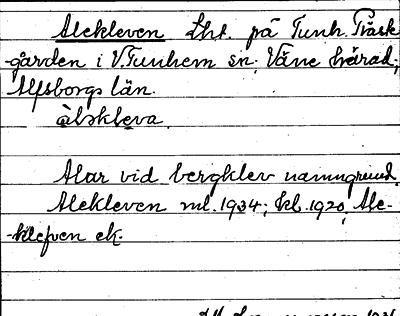 Alekleven Lht. på Tunh. Präst-
gården i V. Tunhem sn. Väne härad,
Älfsborgs län.
àləklèva
Alar vid bergklev namngrund.
Alekleven ml. 1934; kl. 1920, Ale-
klefven ek.